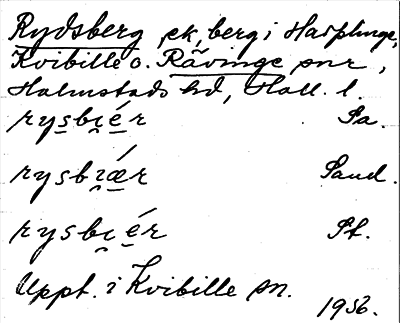 Rydsberg, ek, berg i Harplinge,
Kvibille o. Rävinge snr,
Halmstads hd, Hall. l.
rysbi̯ér Sa.
rysbi̯ǽr Sand.
rysbi̯ér St.
Uppt. i Kvibille sn.
1956.